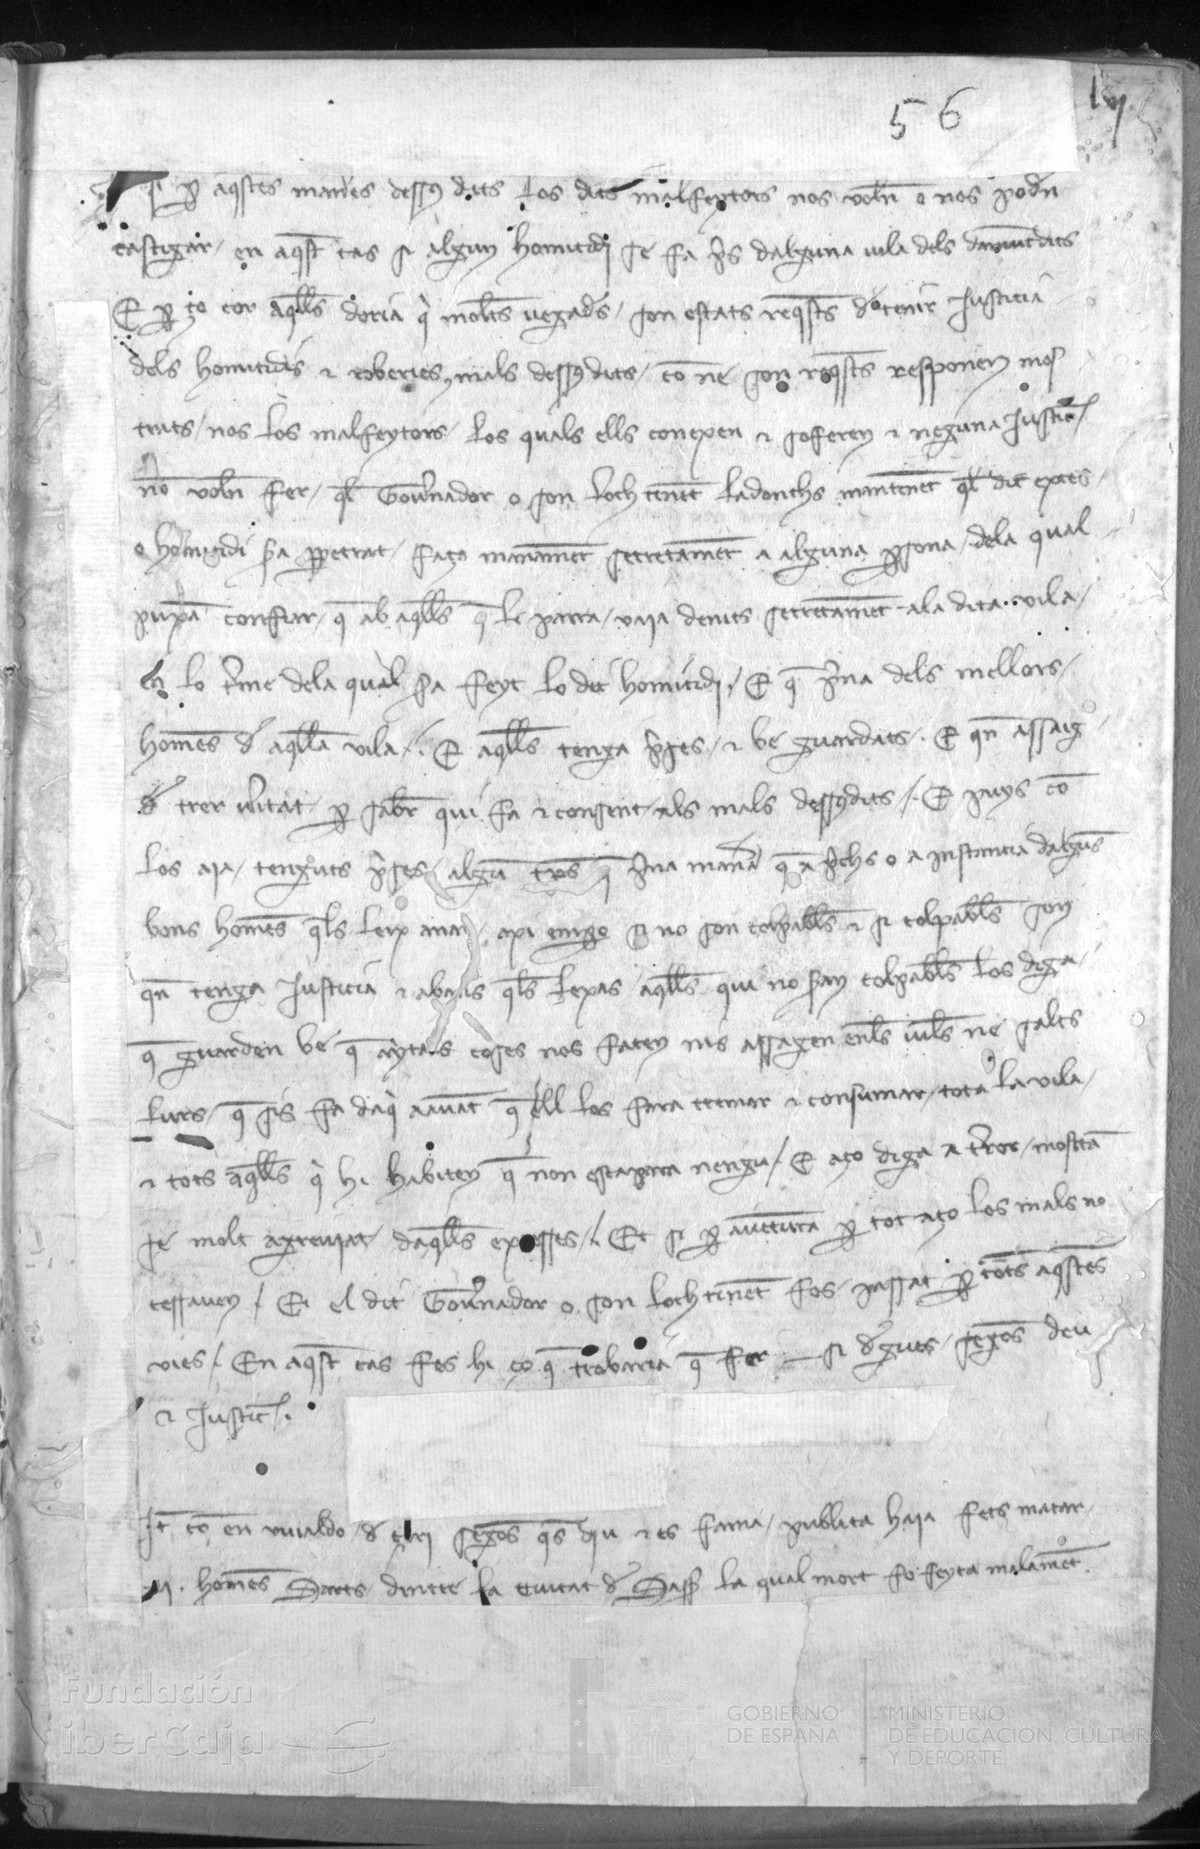 56
lvj
si p aqstes maneres dessus dits los dits malfeytors nos volen o nos poden
castigar / en aqst cas si algun homicidi se fa pres dalguna vila dels damunt dits
E p ço cor aqlls doria q moltes vegades / son estats reqsts dotenir Justicia
dels homicidis & roberies, mals dessus dits / co ne son reqsts responen mos
trats / nos los malfeytors / los quals ells conexen & soferen & neguna Justic /
no volen fer / ql Governador o son loch tinent ladonchs mantenent ql dit exces /
o homicidi sia perpetrat / faça manament secretament a alguna persona / dela qual
puxa confiar / q ab aqlls q li parra / vaja denits secretament ala dita vila /
en lo terme dela qual sia feyt lo dit homicidi / E q prena dels mellors /
homes de aqlla vila / E aqlls tenga preses / & be guardats . E qn assaig
de trer veritat / p saber qui fa & consent / als mals dessusdits / . E puys co
los aia / tenguts preses / algun temps q prena manera q a prechs o a instancia dalguns
bons homes qls leix anar / axi empo si no son colpables & si colpables son
qn tenga Justicia & abans qls lexas aqlls qui no sien colpables los diga /
q guarden be q aytals coses nos facen nis assagen enles viles ne salts
lurs / q sis fa daqi avant q ell los fara cremar & consumar / tota la vila /
& tots aqlls q hi habiten q non escapara nengu / E aço diga a terror / mostran
se molt agreujat daqlls excesses / . Et si p aventura p tot aço los mals no
cessaven / . E el dit Governador o son loch tinent fos / passat p totes aqstes
vies / . En aqst cas fes hi ço q trobaria q fer — si degues / segons deu
& Justic / .
It co en vivaldo / de segons qs diu & es fama / publica haja fets matar /
.ij. homes Sarts dintre la Ciutat de Sasser la qual mort fo feyta malament.
Fundación
iberCaja
GOBIERNO
DE ESPAÑA
MINISTERIO
DE EDUCACION, CULTURA
Y DEPORTE